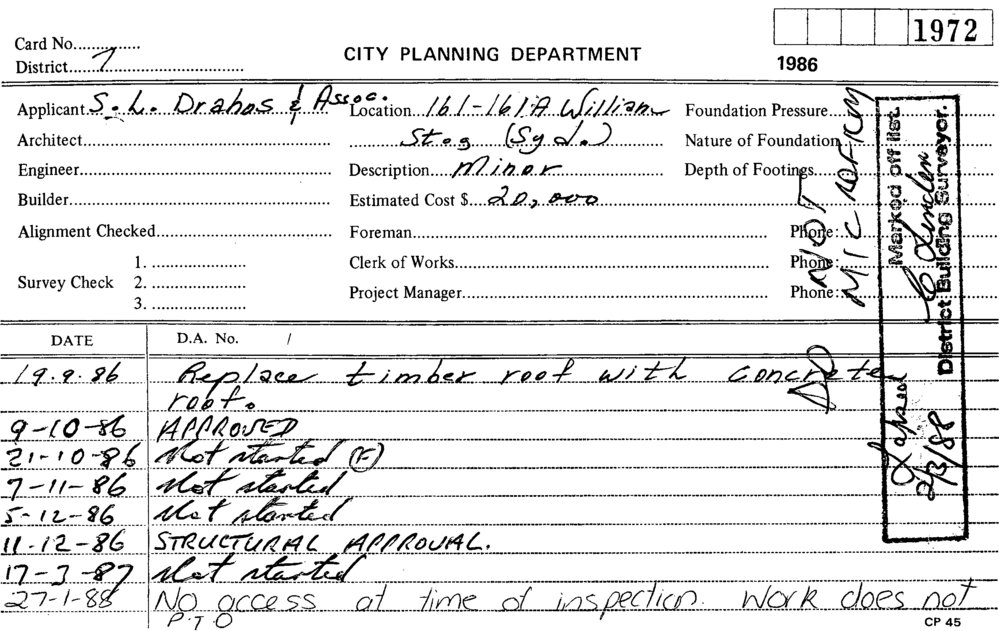 1972
Card No.
CITY PLANNING DEPARTMENT
District 7
1986
Applicant S. L. Drahos & Assoc. Location 161-161A William Foundation Pressure
Architect St. (Syd.) Nature of Foundation
Engineer Description Minor Depth of Footings
Builder Estimated Cost $ 20,000
Alignment Checked Foreman Phone:
Survey Check 1. Clerk of Works Phone:
2.
3. Project Manager Phone:
NOT MICROFILM
Marked off list.
District Building Surveyor.
Lapsed
2/3/88
DATE D.A. No. /
19.9.86 Replace timber roof with concrete
roof.
9-10-86 APPROVED
21-10-86 Not started (F)
7-11-86 Not started
5-12-86 Not started
11-12-86 STRUCTURAL APPROVAL.
17-3-87 Not started
27-1-88 No access at time of inspection. Work does not
P.T.O
CP 45